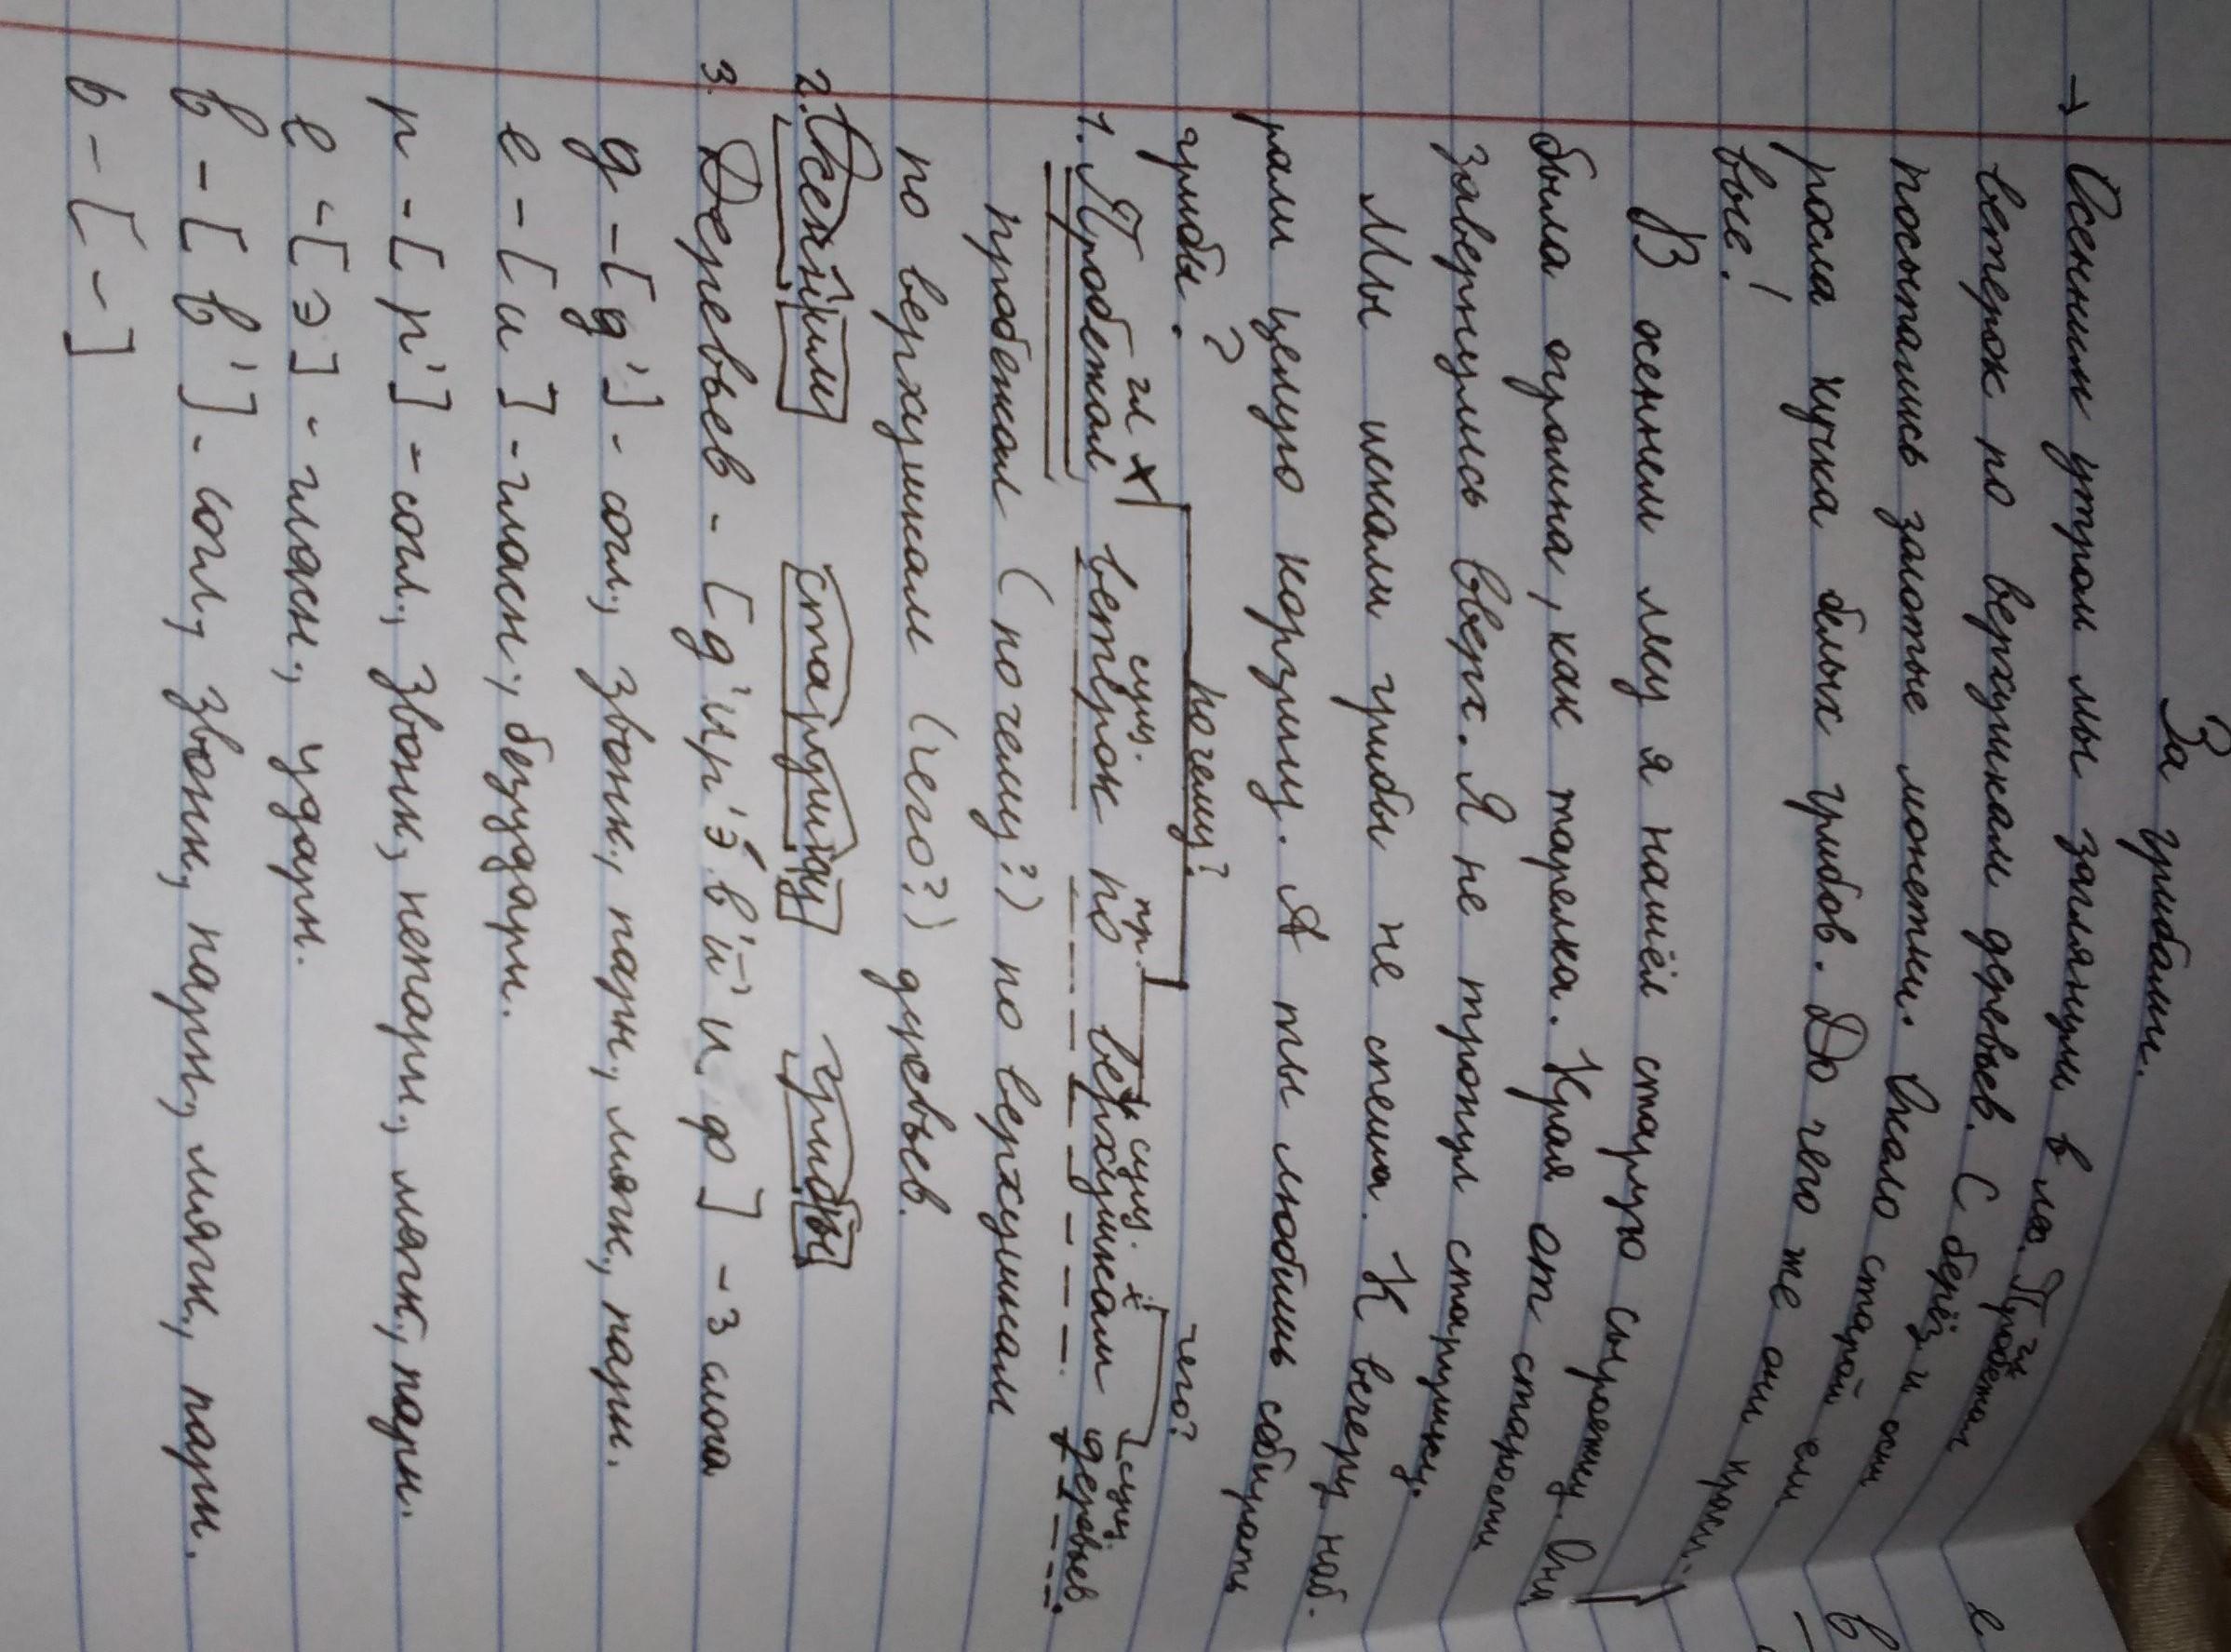 За грибами.
→ Осенним утром мы заглянули в лес. Пробежал гл
ветерок по верхушкам деревьев. С берёз и осин
посыпались золотые монетки. Около старой ели
росла кучка белых грибов. До чего же они краси-
вые!
В осеннем лесу я нашёл старую сыроежку. Она
была огромна, как тарелка. Края от старости
завернулись вверх. Я не тронул старушку.
Мы искали грибы не спеша. К вечеру наб-
рали целую корзину. А ты любишь собирать
грибы?
почему? чего?
гл х сущ. пр. х сущ. х сущ.
1. Пробежал ветерок по верхушкам деревьев.
пробежал (почему?) по верхушкам
по верхушкам (чего?) деревьев.
2. Осенним старушку грибы
3. Деревьев - [д'ир'э́в'й'иф] - 3 слога
д - [д'] - согл., звонк., парн., мягк., парн.
е - [и] - гласн., безударн.
р - [р'] - согл., звонк., непарн., мягк., парн.
е - [э] - гласн., ударн.
в - [в'] - согл., звонк., парн., мягк., парн.
ь - [-]
е
в